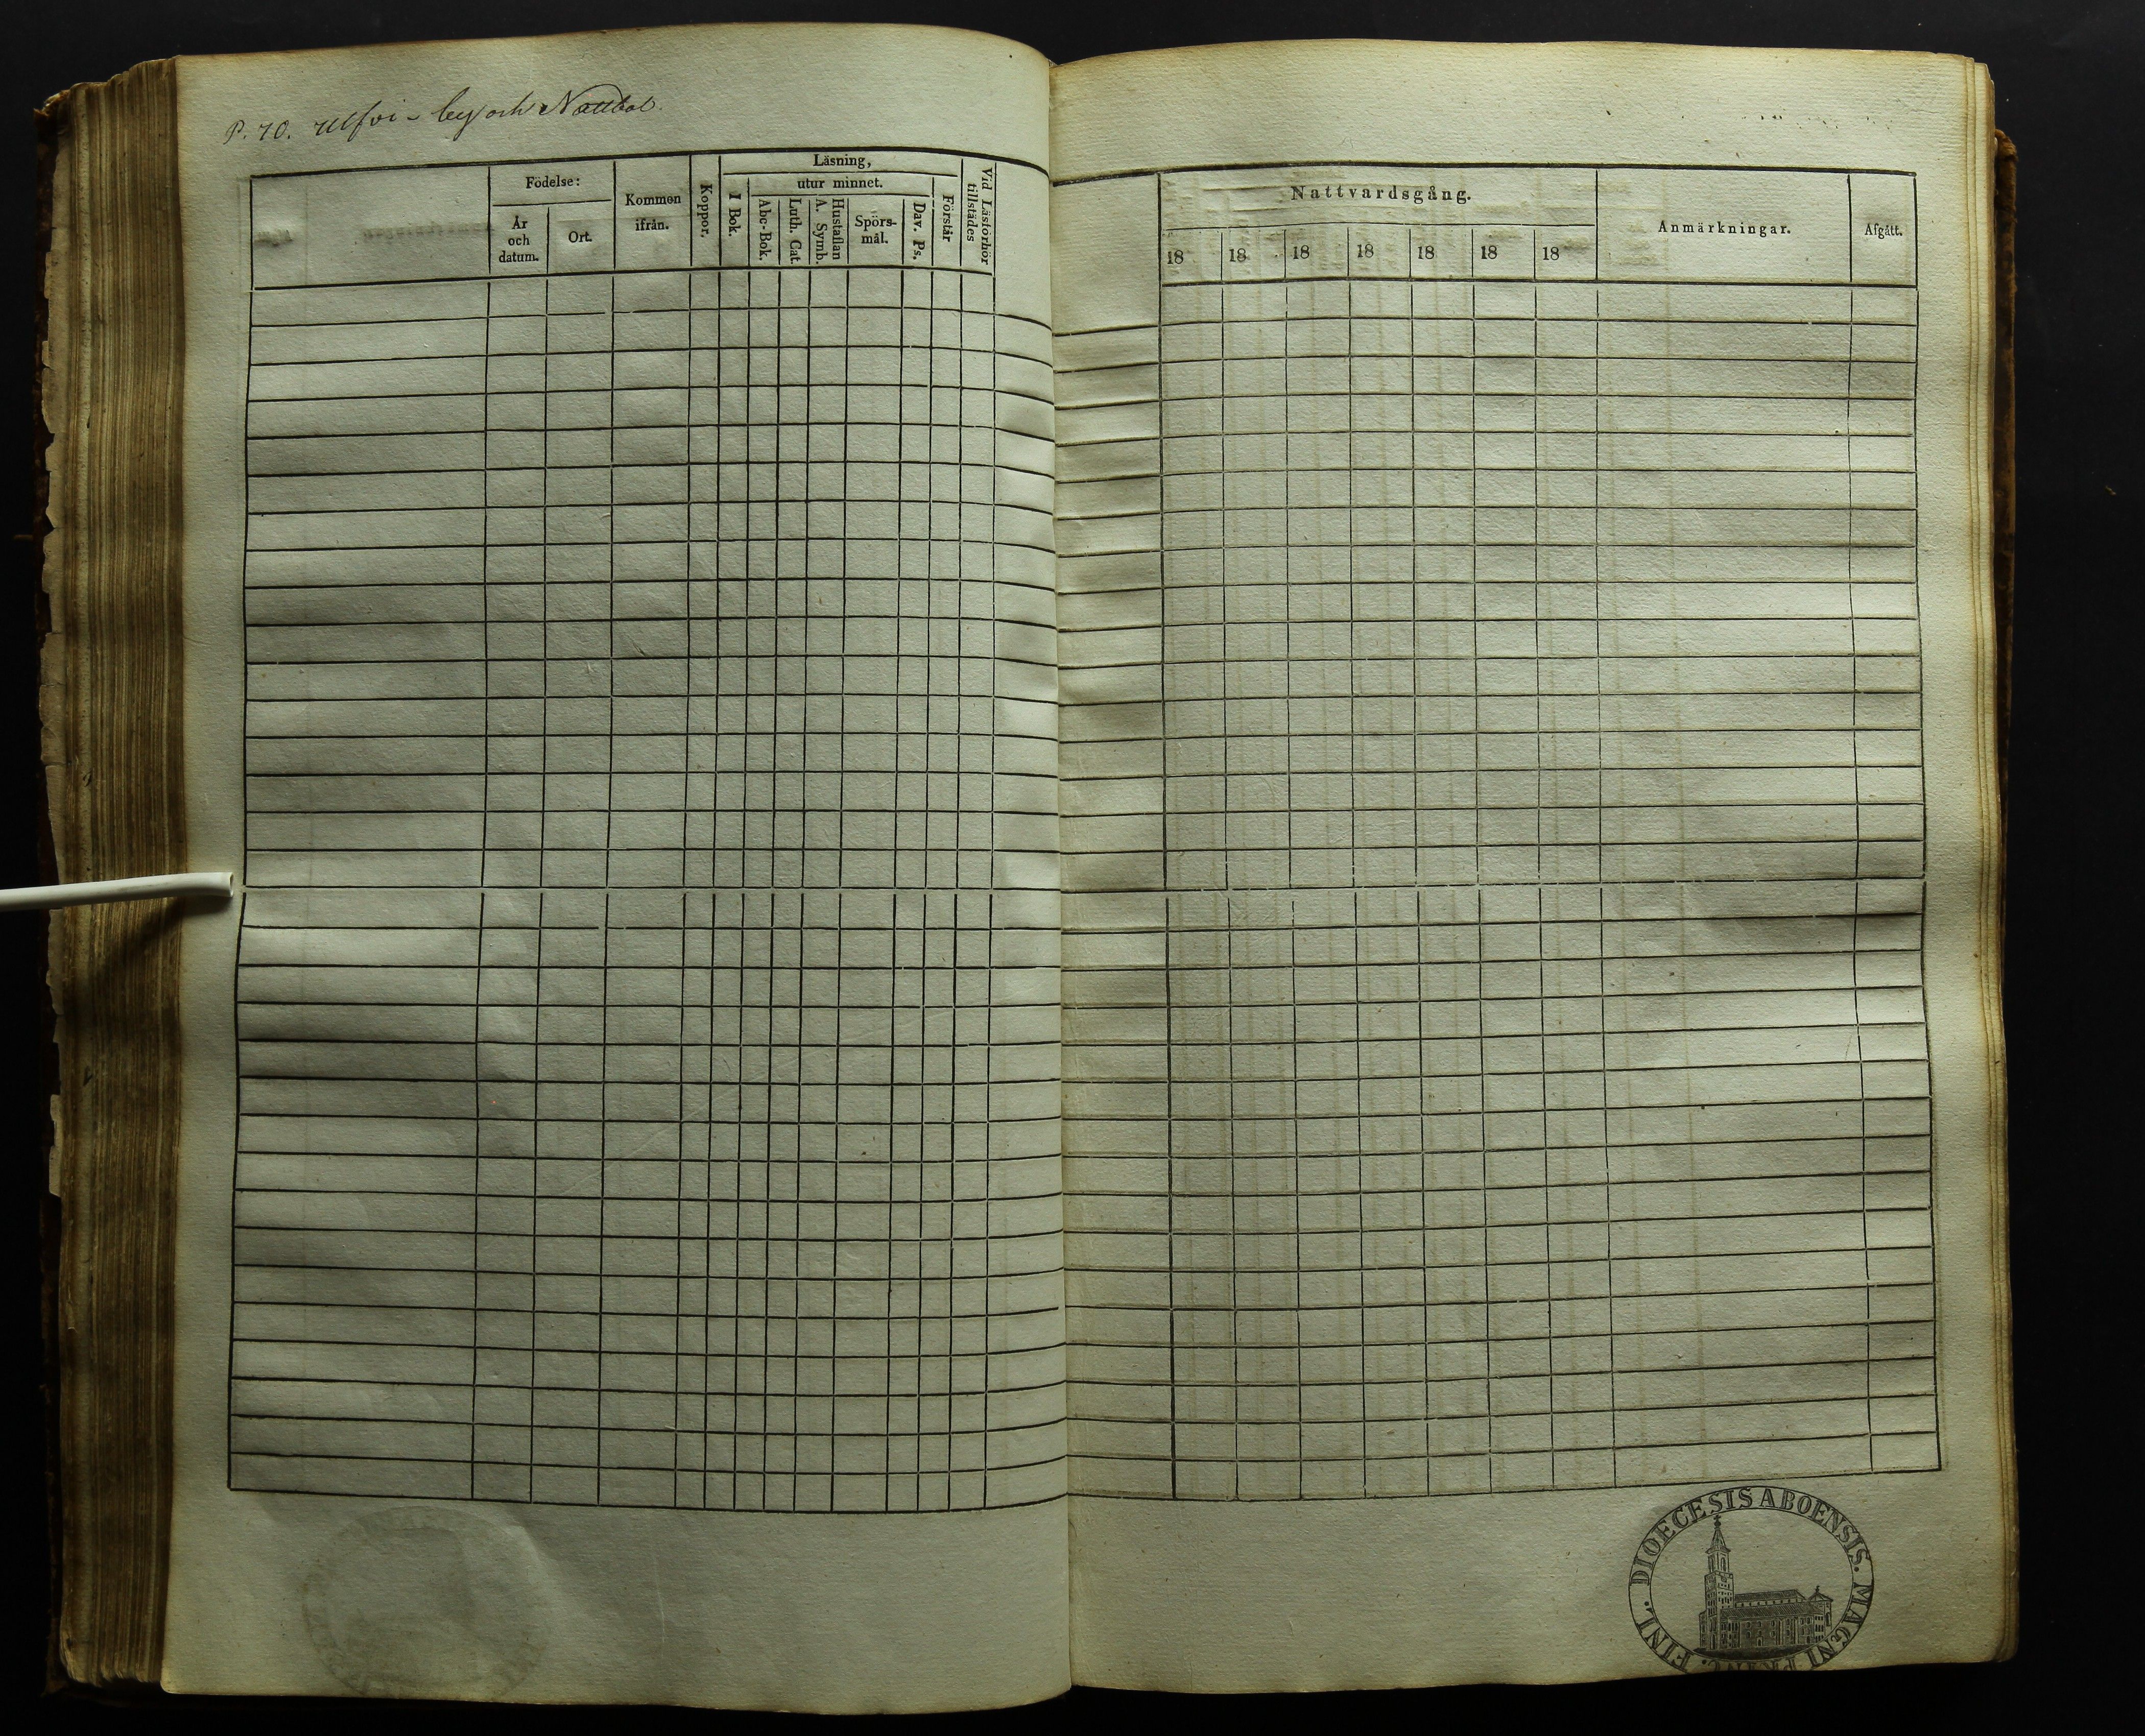 P. 70. Ulfvi-by och Nattbol
Födelse:
År
och
datum.
Ort.
Kommen
ifrån.
Koppor.
Läsning,
I Bok.
utur minnet.
Abc-Bok.
Luth. Cat.
Hustaflan
A. Symb.
Spörs-
mål.
Dav. Ps.
Förstår
Vid Läsförhör
tillstädes
Nattvardsgång.
18 18 18 18 18 18 18
Anmärkningar.
Afgått.
DIOECESIS ABOENSIS. MAGNI PRINC. FINL.